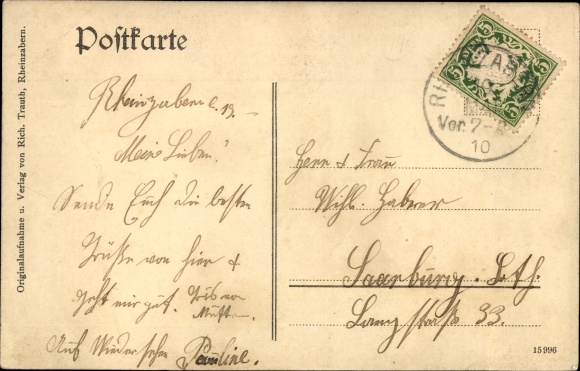 Postkarte
Originalaufnahme u. Verlag von Rich. Trauth, Rheinzabern.
Rheinzabern
Meine Lieben!
Sende Euch die besten
Grüße von hier &
geht mir gut.
Auf Wiedersehen Pauline.
5 5
5 5
RH ZAB
Vor. 7-8
10
Herr & Frau
Wilh. Haberer
Saarburg. Loth.
Langstraß 33.
15996